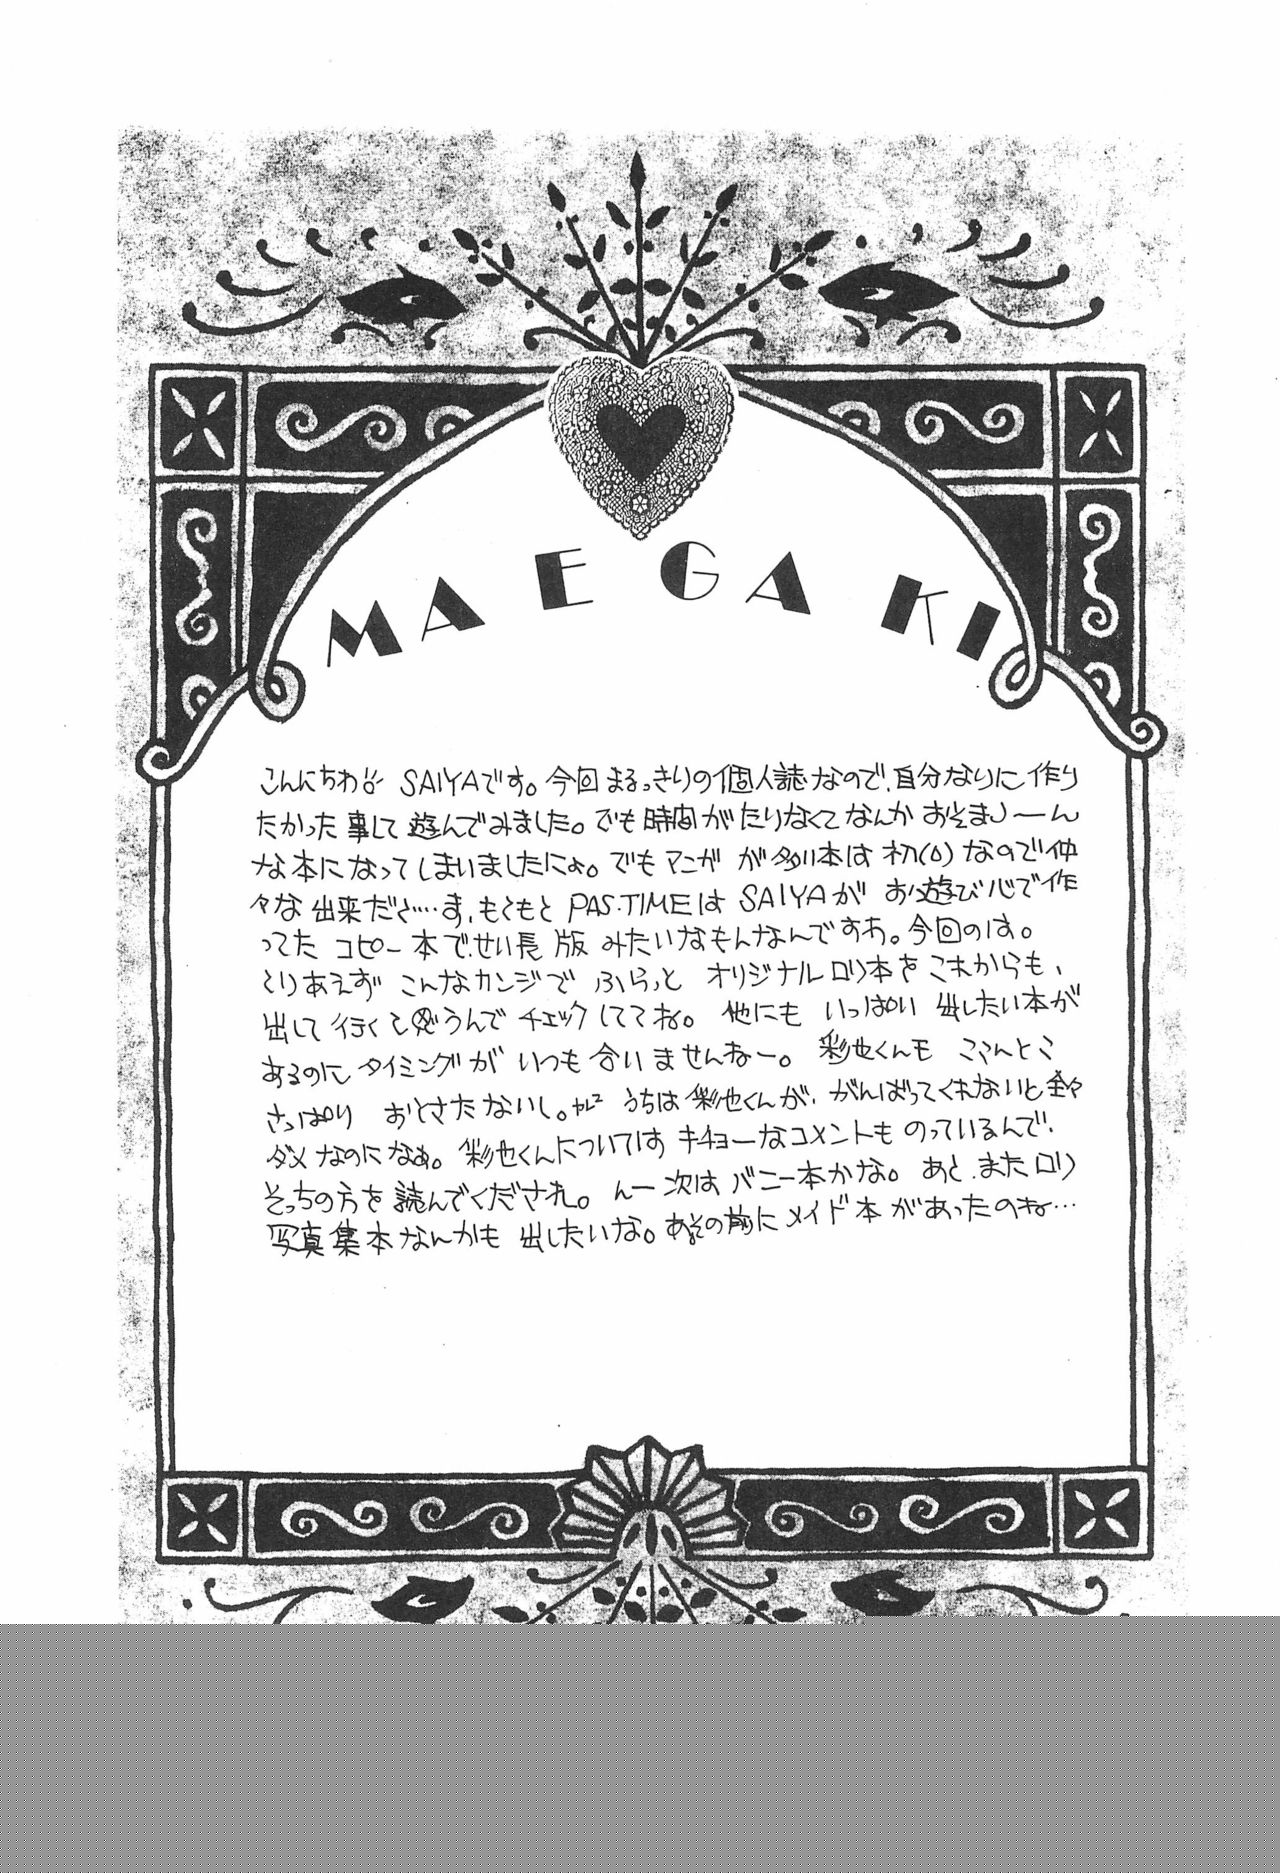 MAEGAKI
こんにちわ SAIYAです。今回まるっきりの個人誌なので、自分なりに作り
たかった事して遊んでみました。でも時間がたりなくてなんかおそまつーん
な本になってしまいましたにょ。でもマンガが多い本は初(の)なので仲
々な出来だ……ま、もともと PAS.TIMEは SAIYAが お遊び心で作
ってた コピー本で、せい長版 みたいなもんなんですわ。今回のは。
とりあえず こんなカンジで ふらっと オリジナルロリ本を これからも、
出して行くと思うんで チェックしててね。他にも いっぱい 出したい本が
あるのに タイミングが いつも合いませんねー。彩也くんも ここんとこ
さっぱり おとさたないし。 うちは 彩也くんが、がんばってくれないと
ダメなのになぁ。彩也くんについては キチョーなコメントも のっているんで、
そっちの方を読んでくだされ。んー次は バニー本かな。あと、またロリ
写真集本なんかも 出したいな。あその前にメイド本があったのね…